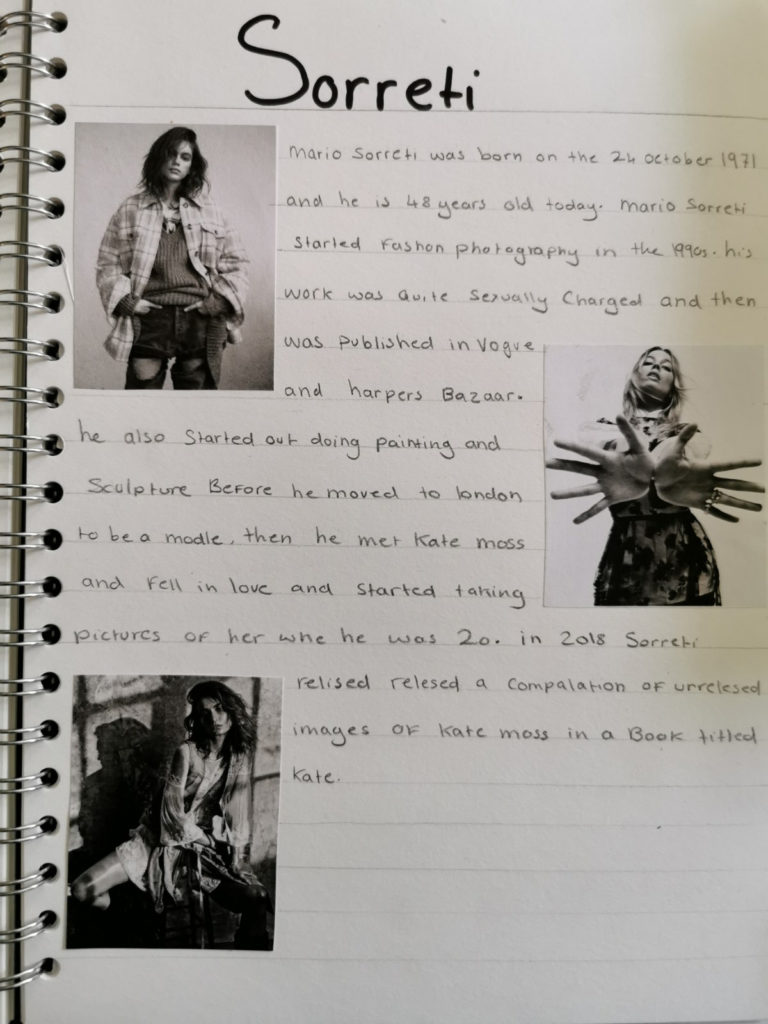 Sorreti
Mario Sorreti was born on the 24 october 1971
and he is 48 years old today. Mario Sorreti
Started Fashon photography in the 1990s. his
work was quite Sexually Charged and then
was published in Vogue
and harpers Bazaar.
he also Started out doing painting and
Sculpture Before he moved to london
to be a modle, then he met Kate moss
and Fell in love and Started taking
pictures of her whe he was 20. in 2018 Sorreti
relised relesed a Compalation of unrelesed
images of Kate moss in a Book titled
Kate.